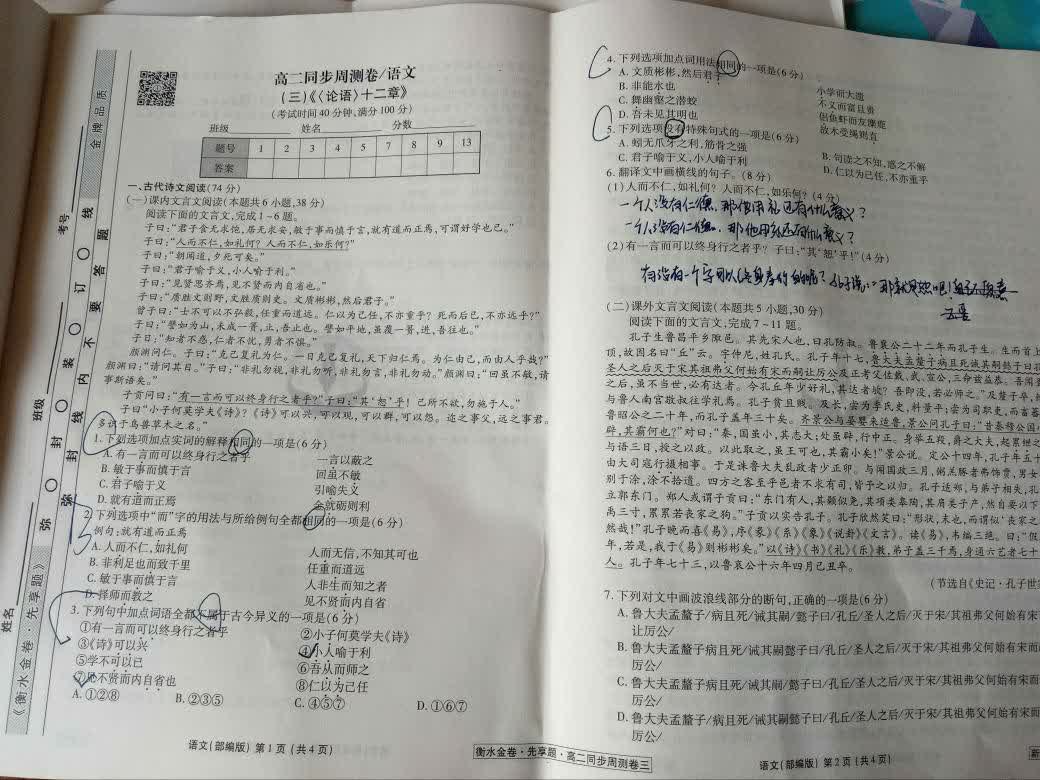 高二同步周测卷/语文
(三)《〈论语〉十二章》
(考试时间40分钟,满分100分)
班级 姓名 分数
题号 1 2 3 4 5 7 8 9 13
答案
一、古代诗文阅读(74分)
(一)课内文言文阅读(本题共6小题,38分)
阅读下面的文言文,完成1~6题。
子曰:“君子食无求饱,居无求安,敏于事而慎于言,就有道而正焉,可谓好学也已。”
子曰:“人而不仁,如礼何?人而不仁,如乐何?”
子曰:“朝闻道,夕死可矣。”
子曰:“君子喻于义,小人喻于利。”
子曰:“见贤思齐焉,见不贤而内自省也。”
子曰:“质胜文则野,文胜质则史。文质彬彬,然后君子。”
曾子曰:“士不可以不弘毅,任重而道远。仁以为己任,不亦重乎?死而后已,不亦远乎?”
子曰:“譬如为山,未成一篑,止,吾止也。譬如平地,虽覆一篑,进,吾往也。”
子曰:“知者不惑,仁者不忧,勇者不惧。”
颜渊问仁。子曰:“克己复礼为仁。一日克己复礼,天下归仁焉。为仁由己,而由人乎哉?”
颜渊曰:“请问其目。”子曰:“非礼勿视,非礼勿听,非礼勿言,非礼勿动。”颜渊曰:“回虽不敏,请
事斯语矣。”
子贡问曰:“有一言而可以终身行之者乎?”子曰:“其‘恕’乎!己所不欲,勿施于人。”
子曰“小子何莫学夫《诗》?《诗》可以兴,可以观,可以群,可以怨。迩之事父,远之事君。
多识于鸟兽草木之名。”
1.下列选项加点实词的解释相同的一项是(6分)
A.有一言而可以终身行之者乎 一言以蔽之
B.敏于事而慎于言 回虽不敏
C.君子喻于义 引喻失义
D.就有道而正焉 金就砺则利
2.下列选项中“而”字的用法与所给例句全都相同的一项是(6分)
例句:就有道而正焉
A.人而不仁,如礼何 人而无信,不知其可也
B.非利足也而致千里 任重而道远
C.敏于事而慎于言 人非生而知之者
D.择师而教之 见不贤而内自省
3.下列句中加点词语全都不属于古今异义的一项是(6分)
①有一言而可以终身行之者乎 ②小子何莫学夫《诗》
③《诗》可以兴 ④小人喻于利
⑤学不可以已 ⑥吾从而师之
⑦见不贤而内自省也 ⑧仁以为己任
A.①②⑧ B.②③⑤ C.④⑤⑦ D.①⑥⑦
语文(部编版) 第1页(共4页)
衡水金卷·先享题·高二同步周测卷三
金牌品质
弥 封 线 内 不 要 答 题
弥 封 装 订 线
考号
班级
姓名
《衡水金卷·先享题》
4.下列选项加点词用法相同的一项是(6分)
A.文质彬彬,然后君子 小学而大遗
B.非能水也 不义而富且贵
C.舞幽壑之潜蛟 侣鱼虾而友麋鹿
D.吾未见其明也 故木受绳则直
5.下列选项没有特殊句式的一项是(6分)
A.蚓无爪牙之利,筋骨之强 B.句读之不知,惑之不解
C.君子喻于义,小人喻于利 D.仁以为己任,不亦重乎
6.翻译文中画横线的句子。(8分)
(1)人而不仁,如礼何?人而不仁,如乐何?(4分)
一个人没有仁德,那使用礼还有什么意义?
一个人没有仁德,那他用乐还有什么意义?
(2)有一言而可以终身行之者乎?子曰:“其‘恕’乎!”(4分)
(二)课外文言文阅读(本题共5小题,30分)
阅读下面的文言文,完成7~11题。
孔子生鲁昌平乡陬邑。其先宋人也,曰孔防叔。鲁襄公二十二年而孔子生。生而首上
顶,故因名曰“丘”云。字仲尼,姓孔氏。孔子年十七,鲁大夫孟釐子病且死诫其嗣懿子曰孔
圣人之后灭于宋其祖弗父何始有宋而嗣让厉公及正考父佐戴、武、宣公,三命兹益恭。吾闻
之后,虽不当世,必有达者。今孔丘年少好礼,其达者欤?吾即没,若必师之。”及釐子卒,
与鲁人南宫敬叔往学礼焉。孔子贫且贱。及长,尝为季氏史,料量平;尝为司职吏,而畜蕃
鲁昭公之二十年,而孔子盖年三十矣。齐景公与晏婴来适鲁,景公问孔子曰:“昔秦穆公国
辟,其霸何也?”对曰:“秦,国虽小,其志大;处虽辟,行中正。身举五羖,爵之大夫,起累绁之
与语三日,授之以政。以此取之,虽王可也,其霸小矣!”景公说。定公十四年,孔子年五十
由大司寇行摄相事。于是诛鲁大夫乱政者少正卯。与闻国政三月,粥羔豚者弗饰贾,男女
别于涂,涂不拾遗。四方之客至乎邑者不求有司,皆予之以归。孔子适郑,与弟子相失,孔
立郭东门。郑人或谓子贡曰:“东门有人,其颡似尧,其项类皋陶,其肩类子产,然自要以下
禹三寸,累累若丧家之狗。”子贡以实告孔子。孔子欣然笑曰:“形状,末也,而谓似‘丧家之
然哉!”孔子晚而喜《易》,序《彖》《系》《象》《说卦》《文言》。读《易》,韦编三绝。曰:“假
年,若是,我于《易》则彬彬矣。”以《诗》《书》《礼》《乐》教,弟子盖三千焉,身通六艺者七十
人。孔子年七十三,以鲁哀公十六年四月己丑卒。
(节选自《史记·孔子世
7.下列对文中画波浪线部分的断句,正确的一项是(6分)
A.鲁大夫孟釐子/病且死/诫其嗣/懿子曰/孔丘/圣人之后/灭于宋/其祖弗父何始有宋
让厉公/
B.鲁大夫孟釐子病且死/诫其嗣懿子曰/孔丘/圣人之后/灭于宋/其祖弗父何始有宋而
厉公/
C.鲁大夫孟釐子病且死/诫其嗣/懿子曰/孔丘/圣人之后/灭于宋/其祖弗父何始有宋而
厉公/
D.鲁大夫孟釐子/病且死/诫其嗣懿子曰/孔丘/圣人之后/灭于宋/其祖弗父何始有宋而
厉公/
语文(部编版) 第2页(共4页)
新